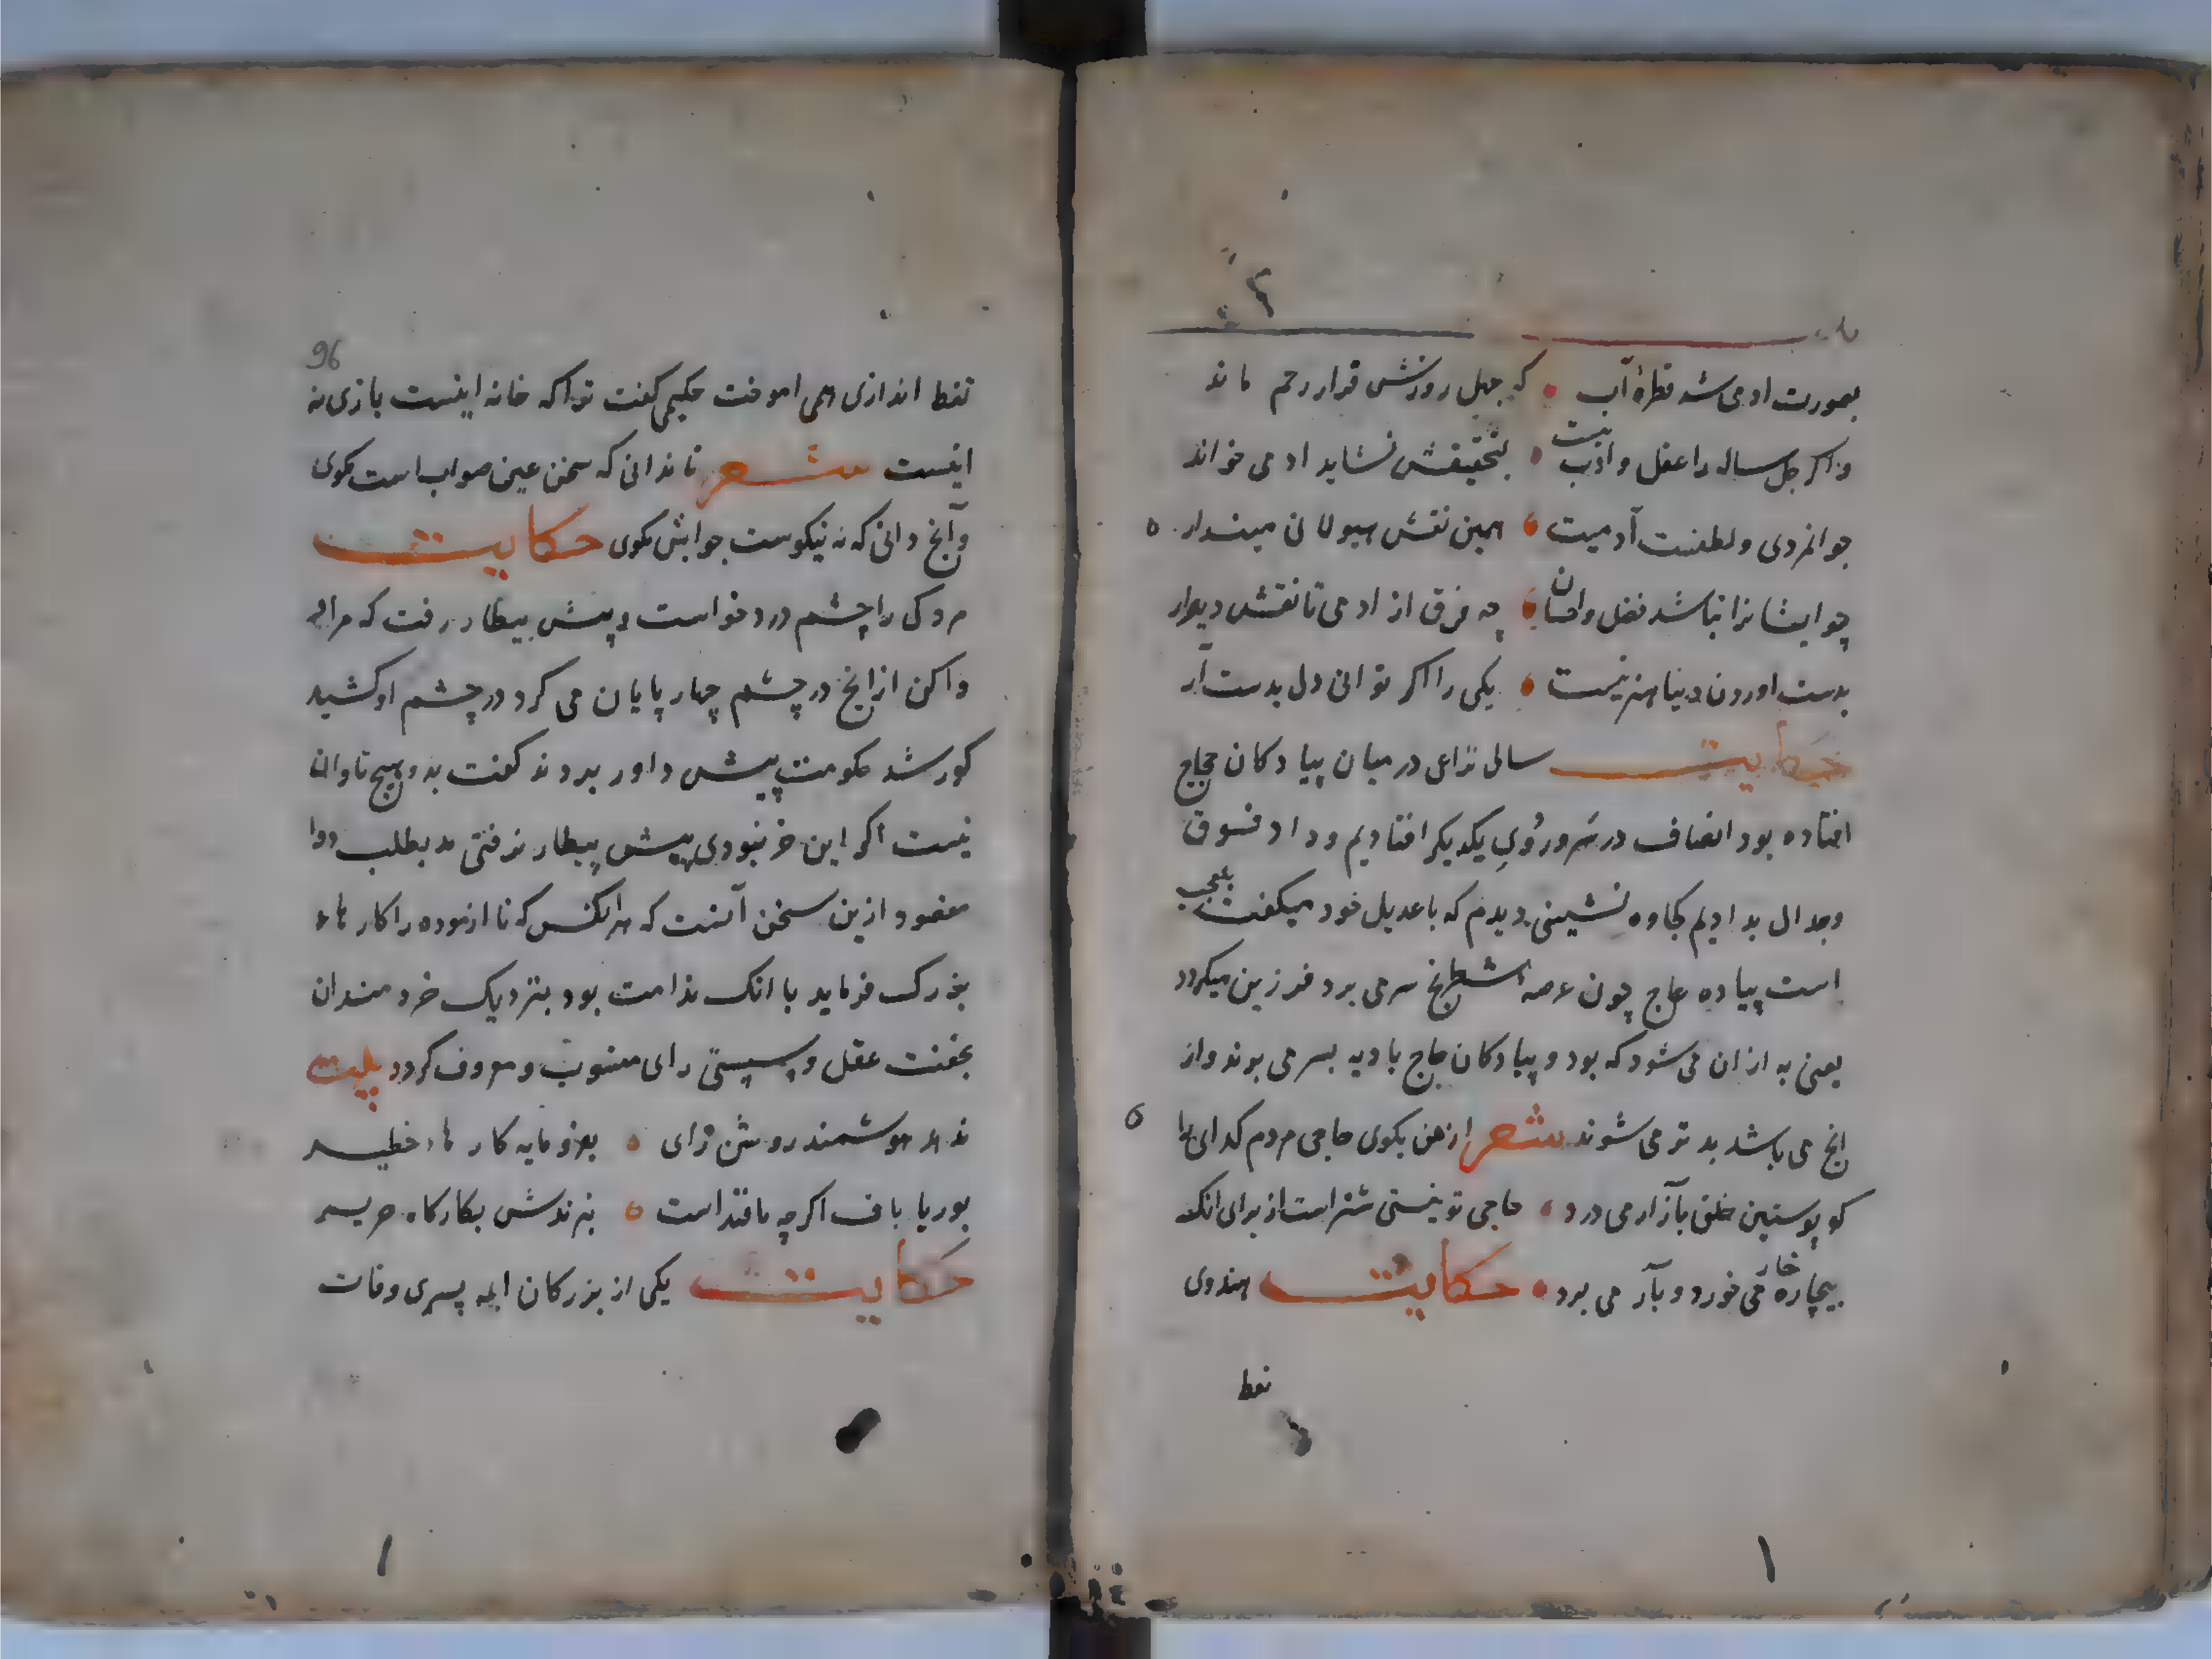 بصورت ادمی شد قطرهٔ آب که جهل روزش قرار رحم ماند
و اکر جل ساله را عقل و ادب نیست بتحقیقش نشاید ادمی خواند
جوانمردی و لطفست آدمیت همین نقش هیولانی مپندار
چو ایشانرا نباشد فضل و احسان چه فرق از ادمی تا نقش دیوار
بدست اوردن دنیا هنر نیست یکی را اکر توانی دل بدست آر
حکایت سالی نزاعی در میان پیادکان حجاج
افتاده بود انصاف در سر و روی یکدیکر افتادیم و داد فسوق
و جدال بدادیم کجاوه نشینی دیدم که با عدیل خود میکفت بلعجب
است پیاده عاج چون عرصه شطرنج سر می برد فرزین میکردد
یعنی به ازان می شود که بود و پیادکان حاج بادیه بسر می بوند و از
انج می باشد بدتر می شوند شعر از من بکوی حاجی مردم کدای را
کو پوستین خلق بآزار می درد حاجی تو نیستی شتر است از برای انک
بیچاره خار می خورد و بآر می برد حکایت هندوی
نفط
96
نفط اندازی همی اموخت حکیمی کفت تو اکه خانه اینست بازی نه
اینست شعر تا ندانی که سخن عین صواب است مکوی
وآنج دانی که نه نیکوست جوابش مکوی حکایت
مردکی را چشم درد خواست پیش بیطار رفت که مرا
دوا کن از انج در چشم چهار پایان می کرد در چشم او کشید
کور شد حکومت پیش داور بردند کفت بدو هیچ تاوان
نیست اکر این خر نبودی پیش بیطار نرفتی بطلب دوا
مقصود ازین سخن آنست که هرانکس که نا ازموده را کار هاء
بزرک فرماید با انک ندامت بود بنزدیک خردمندان
بخفت عقل و سپستی رای منسوب و معروف کردد بیت
ندهد هوشمند روشن رای بفرومایه کار هاء خطیر
بوریا باف اکرچه بافنداست نبرندش بکارکاه حریر
حکایت یکی از بزرکان ایمه پسری وفات